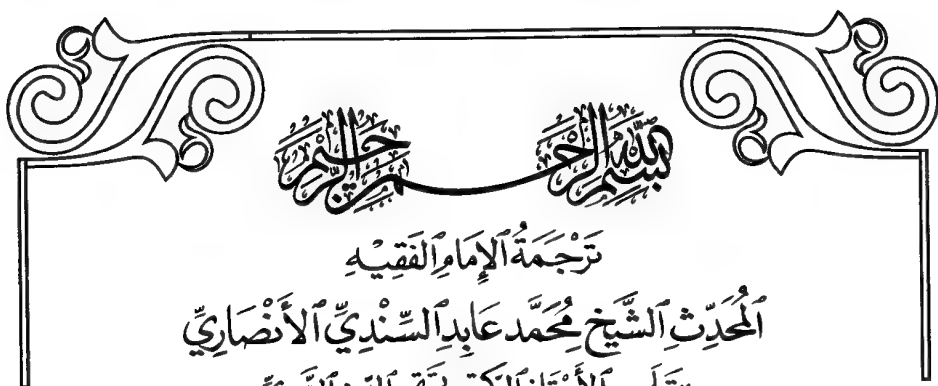 بِسْمِ اللهِ الرَّحْمَنِ الرَّحِيمِ
تَرْجَمَةُ ٱلْإِمَامِ ٱلْفَقِيْهِ
ٱلْمُحَدِّثِ ٱلشَّيْخِ مُحَمَّد عَابِد ٱلسِّنْدِيِّ ٱلْأَنْصَارِيِّ